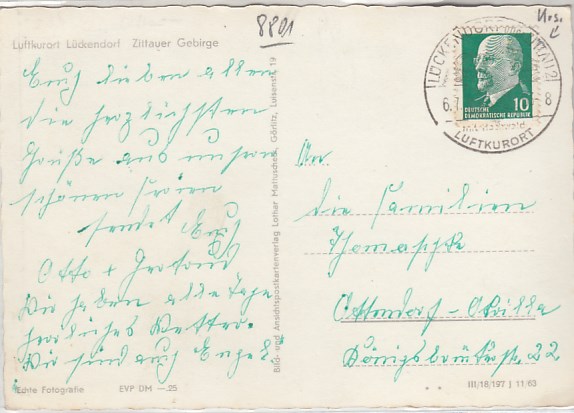 8801
Luftkurort Lückendorf Zittauer Gebirge
Euch lieben allen
die herzlichsten
Grüße aus unsren
schönen Ferien
sendet Euch
Otto +
Wir haben alle Tage
herrliches Wetter.
Wir sind auch
Echte Fotografie EVP DM —.25
Bild- und Ansichtspostkartenverlag Lothar Mattuscheck, Görlitz, Luisenstr. 19
LÜCKENDORF über ZITTAU 2
6.7. 8
LUFTKURORT
10
DEUTSCHE
DEMOKRATISCHE REPUBLIK
An
die Familien
Thomaschke
Ottendorf-Okrilla
Königsbrückerstr. 22
III/18/197 J 11/63